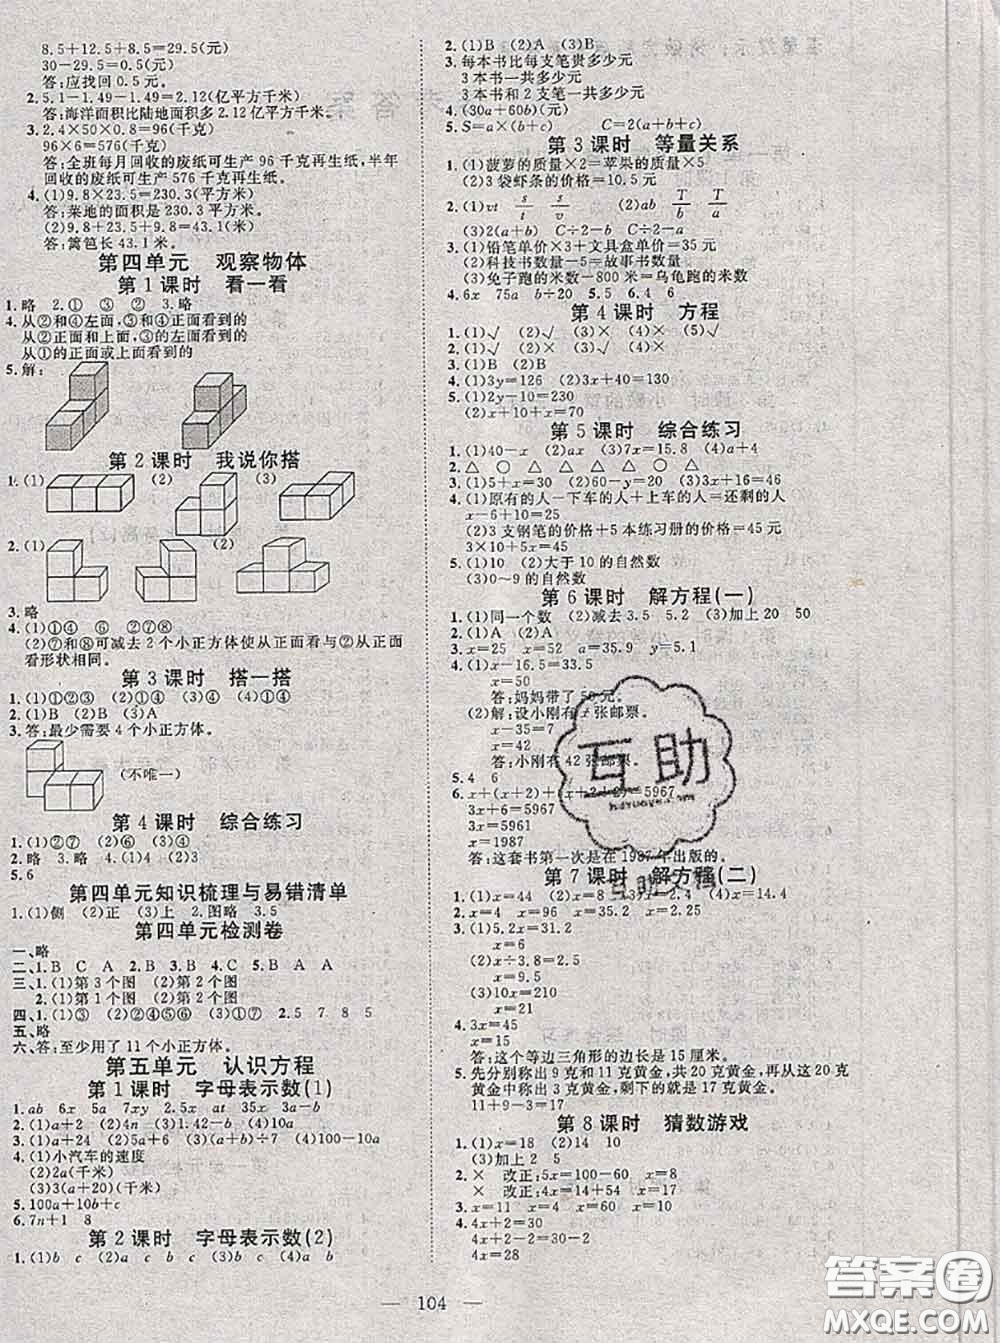 8.5+12.5+8.5=29.5(元)
30-29.5=0.5(元)
答:应找回0.5元。
2. 5.1-1.49-1.49=2.12(亿平方千米)
答:海洋面积比陆地面积多2.12亿平方千米。
3. 2.4×50×0.8=96(千克)
96×6=576(千克)
答:全班每月回收的废纸可生产96千克再生纸,半年
回收的废纸可生产576千克再生纸。
4. (1)9.8×23.5=230.3(平方米)
答:菜地的面积是230.3平方米。
(2)9.8+23.5+9.8=43.1(米)
答:篱笆长43.1米。
第四单元 观察物体
第1课时 看一看
1. 略 2. ① ③ ② 3. 略
4. 从②和④左面,③和④正面看到的
从②正面和上面,③上面看到的
从①的正面或上面看到的
5. 解:
第2课时 我说你搭
1. (1) (2) (3)
2. (1) (2)
3. 略
4. (1)①④ ⑥ ②⑦⑧
(2)⑦和⑧可减去2个小正方体使从正面看与②从正面
看形状相同。
第3课时 搭一搭
1. (1)①②③ (2)①④ (3)①④ (4)①④
2. (1)B (2)B (3)A
3. 答:最少需要4个小正方体。
(不唯一)
第4课时 综合练习
1. (1)①②⑦ (2)⑥ (3)④
2. 略 3. 略 4. (1)4 (2)3
5. 6
第四单元知识梳理与易错清单
1. (1)侧 (2)正 (3)上 2. 图略 3. 5
第四单元检测卷
一、略
二、1. B C A 2. B 3. B 4. C 5. B A A
三、1. (1)第3个图 (2)第2个图
2. (1)第1个图 (2)第2个图
四、1. (1)③ (2)②④⑤⑥ (3)①⑦ 2. 5 7 8 5
五、略
六、答:至少用了11个小正方体。
第五单元 认识方程
第1课时 字母表示数(1)
1. ab 6x 5a 7xy 2. 5x at 35x 3a
2. (1)a+2 (2)4a (3)1.42-b (4)4a
3. (1)24+a (2)9b (3)(a+b)÷7 (4)100-10a
4. (1)小汽车的速度
(2)2a(千米)
(3)3(a+20)(千米)
5. 100a+10b+c
6. 7n+1 8
第2课时 字母表示数(2)
1. (1)b c (2)a c b c (3)b c (4)a b
2. (1)B (2)A (3)B
3. 每本书比每支笔贵多少元
3本书一共多少元
3本书和2支笔一共多少元
4. (30a+60b)(元)
5. S=a×(b+c) C=2(a+b+c)
第3课时 等量关系
1. (1)菠萝的质量×2=苹果的质量×5
(2)3袋虾条的价格=10.5元
2. (1)vt s/t s/v (2)ab T/b T/a
(3)2(a+b) C÷2-b C÷2-a
3. (1)铅笔单价×3+文具盒单价=30元
(2)科技书数量-5=故事书数量
(3)兔子跑的米数-800米=乌龟跑的米数
4. 6x 75a b÷20 5. 5 6. 4 6
第4课时 方程
1. (1)√ (2)× (3)× (4)× (5)√
2. (1)√ (2)× (3)√ (4)×
3. (1)B (2)B
4. (1)3y=126 (2)3x+40=130
5. (1)2y-10=230
(2)x+10+x=70
第5课时 综合练习
1. (1)40-x (2)5ax (3)7.1x (4)a+4
2. △ ○ △ △ ○ ○
3. (1)5+x=30 (2)6x=48 (3)5x+16=46
4. (1)原有的人-下车的人+上车的人=还剩的人
x-6+10=25
(2)3支钢笔的价格+5本练习册的价格=45元
3×10+5x=45
5. (1)10 (2)大于10的自然数
(3)0~9的自然数
第6课时 解方程(一)
1. (1)同一个数 (2)减去3.5 5.2 (3)加上20 50
2. (1)A (2)A
3. x=25 x=52 a=35.9 x=5.1
4. (1)x-16.5=33.5
x=50
答:妈妈带了50元。
(2)解:设小刚有x张邮票。
x-35=7
x=42
答:小刚有42张邮票。
5. 4 6
6. x+(x+2)+(x+2+2)=5967
3x+6=5967
3x=5961
x=1987
答:这套书第一次是在1987年出版的。
第7课时 解方程(二)
1. (1)x=44 (2)x=8 (3)x=2 (4)x=14.4
2. x=4 x=56 x=9.6 x=160
3. (1)5.2x=31.2
x=6
(2)x÷3.8=2.5
x=9.5
(3)10x=210
x=21
4. 3x=45
x=15
答:这个等边三角形的边长是15厘米。
5. 先分别称出9克和11克黄金,共20克黄金,再从这20克
黄金中称出3克黄金,剩下的就是17克黄金。
11+9-3=17
第8课时 猜数游戏
1. (1)x=18 (2)14 10
(3)加上2 5
2. × 改正:5x=100-60 x=8
× 改正:4x=14+54 x=17
3. x=11 x=4 x=60 x=3
4. 4x+2=30
4x=28
104
互助
互助文档
答案圈
MXQE.COM